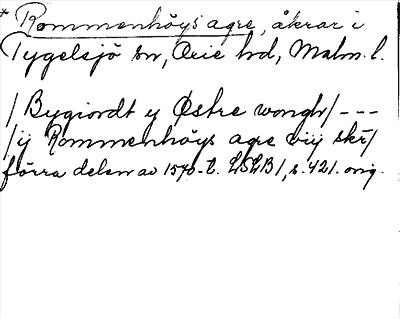 * Rommenhöys agre, åkrar i
Tygelsjö sn, Oxie hd, Malm. l.
/ Bygiordt y Østre wongh / ---
/ ij Rommenhöys agre viij skr /
förra delen av 1570-t. LSLB /, s. 421. orig.